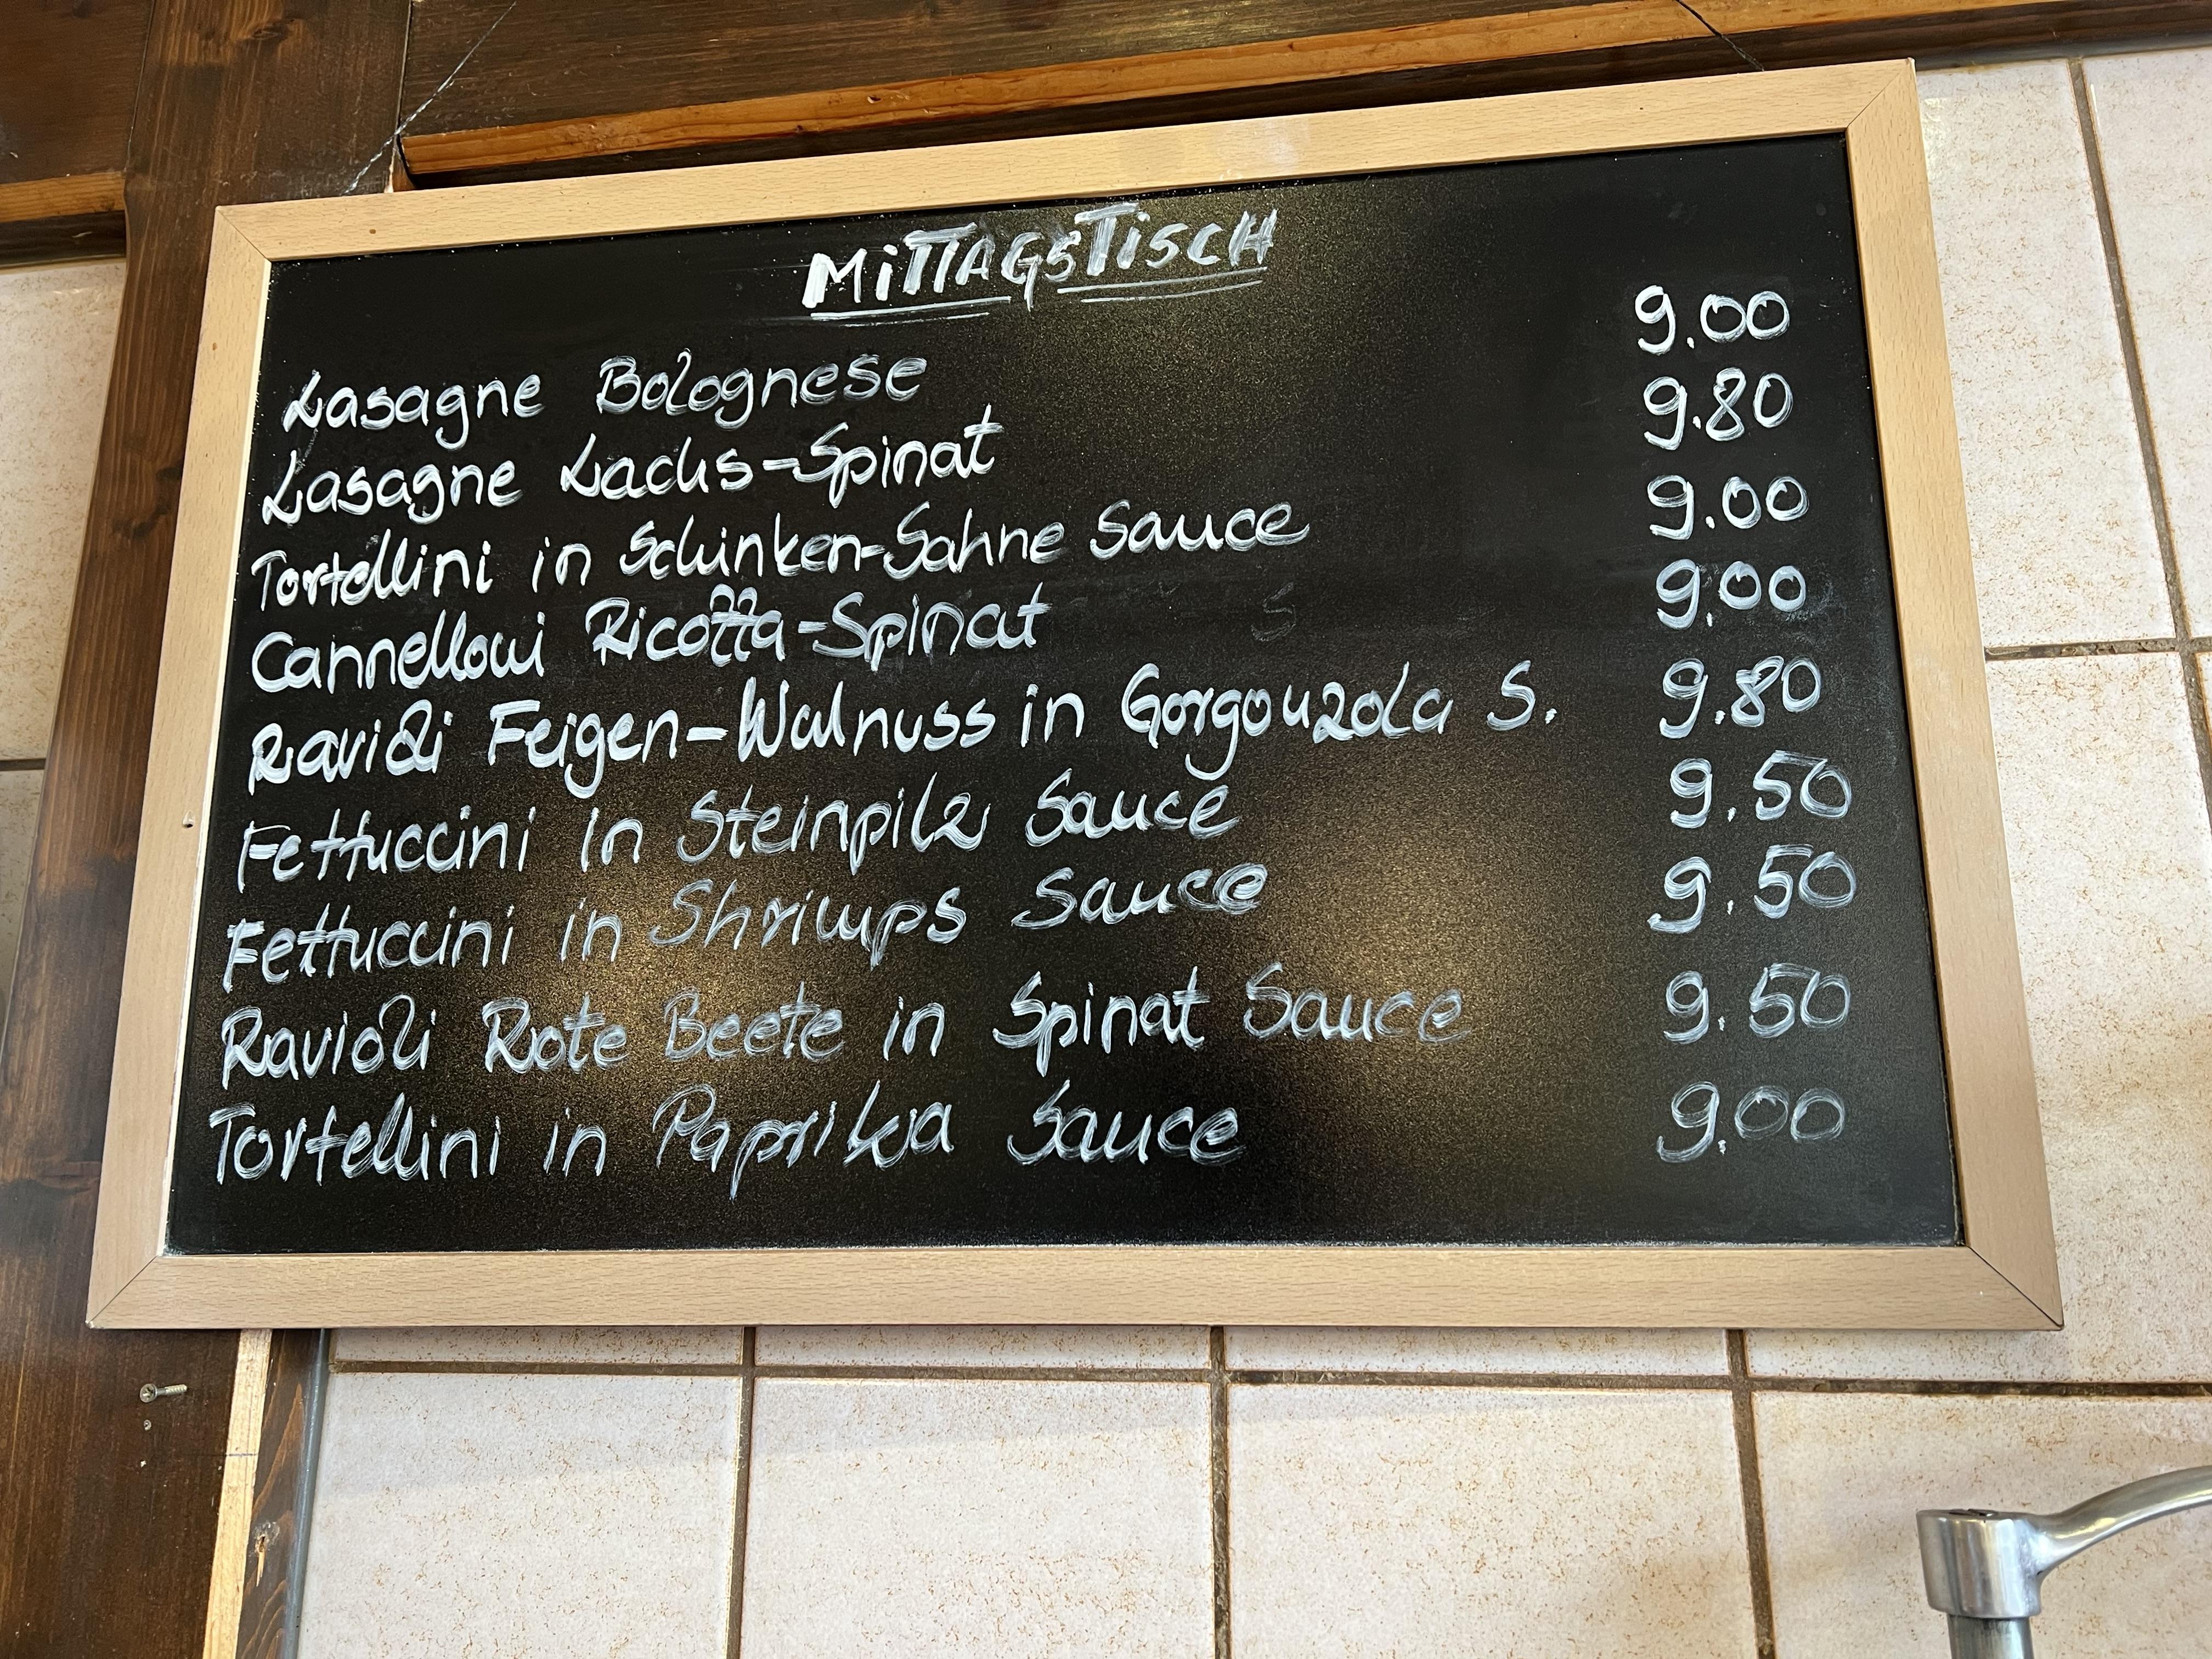 MiTTAGSTiSCH
Lasagne Bolognese 9.00
Lasagne Lachs-Spinat 9.80
Tortellini in Schinken-Sahne Sauce 9.00
Cannelloni Ricotta-Spinat 9.00
Ravioli Feigen-Walnuss in Gorgonzola S. 9.80
Fettuccini in Steinpilz Sauce 9.50
Fettuccini in Shrimps Sauce 9.50
Ravioli Rote Beete in Spinat Sauce 9.50
Tortellini in Paprika Sauce 9.00